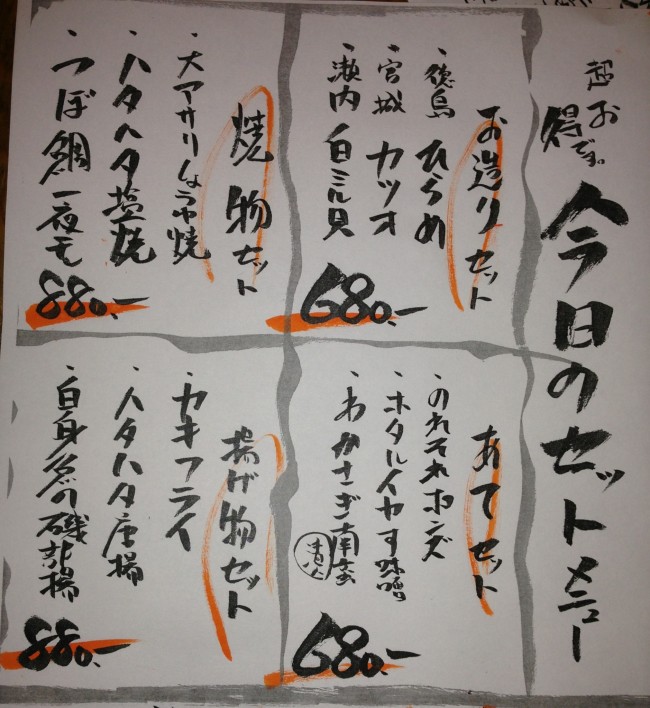 超お得です。
今日のセットメニュー
お造りセット
・徳島 ひらめ
・宮城 カツオ
・瀬内 白ミル貝
680.-
焼物セット
・大アサリしょうゆ焼
・ハタハタ塩焼
・つぼ鯛一夜干
880.-
あてセット
・のれそれポンズ
・ホタルイカす味噌
・わかさぎ南蛮漬
680.-
揚げ物セット
・カキフライ
・ハタハタ唐揚
・白身魚の磯部揚
880.-